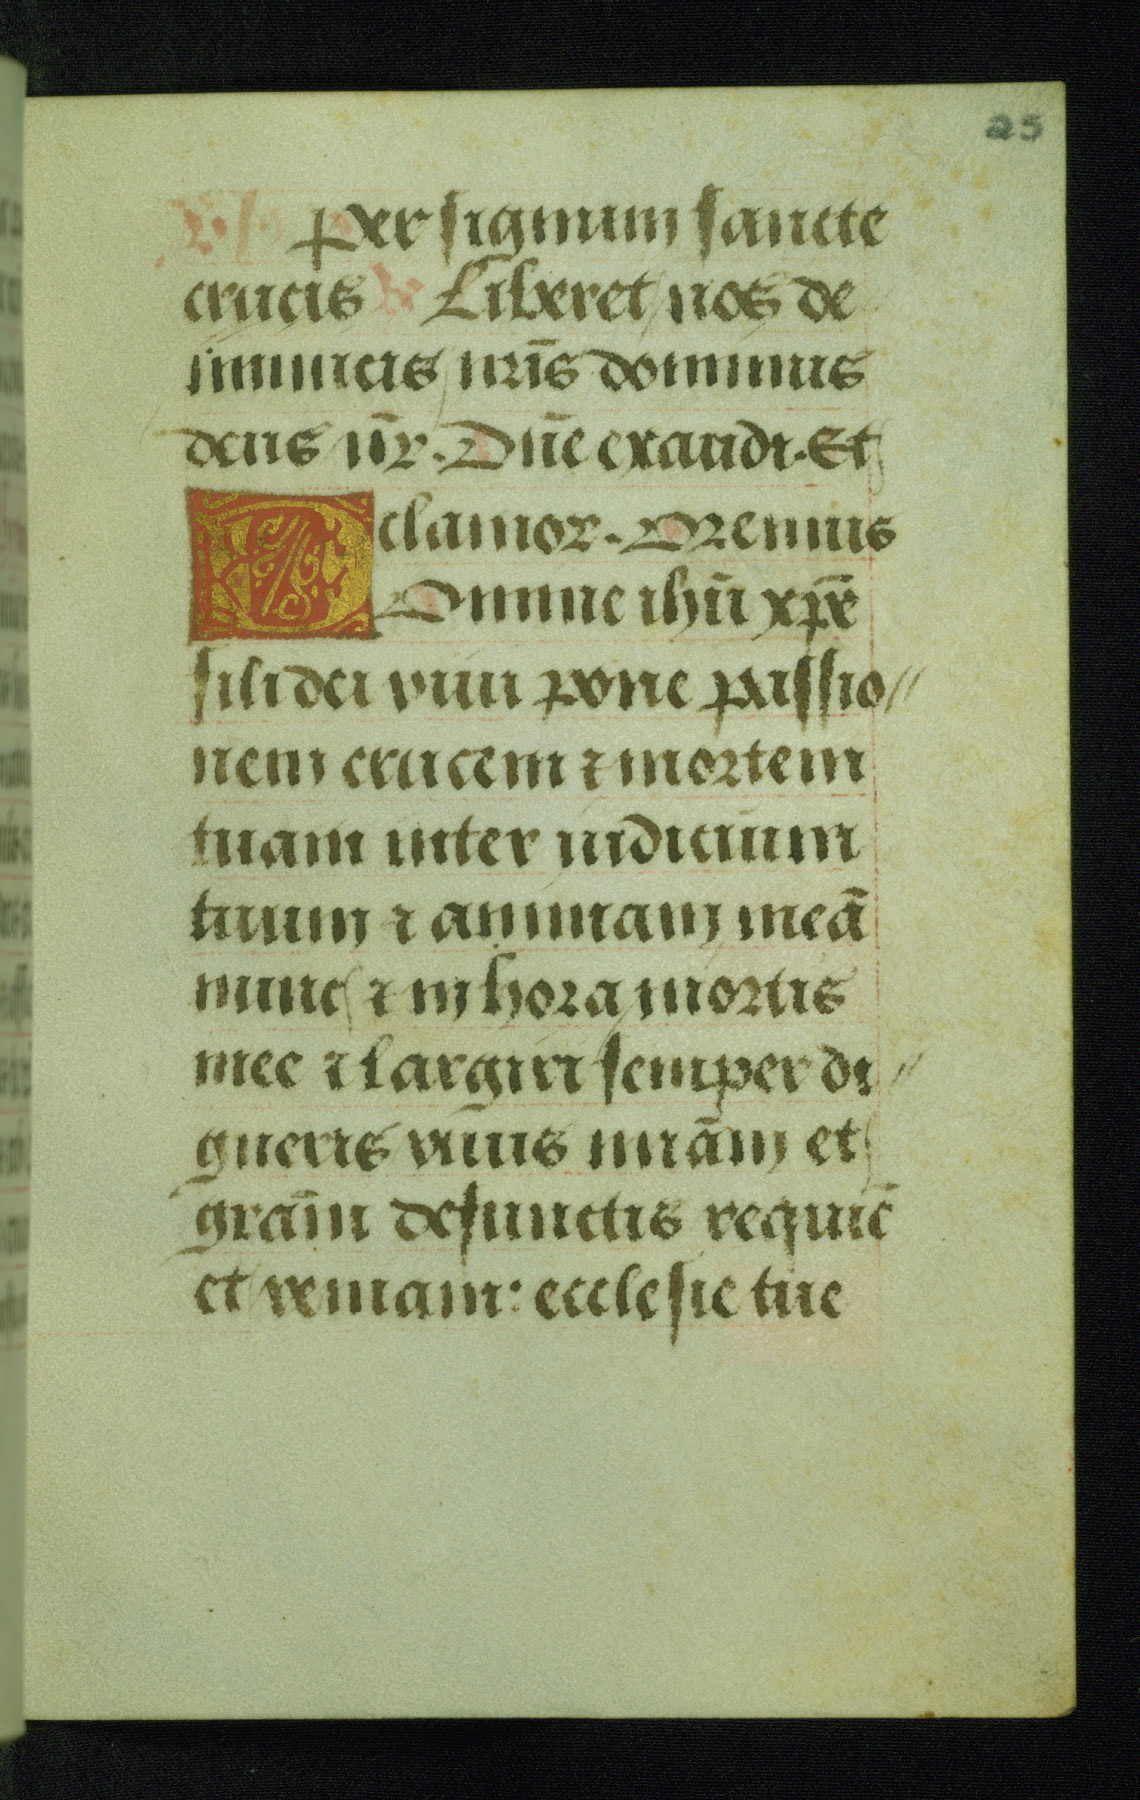 25
Per signum sancte
crucis Liberet nos de
inimicis nr̄is dominus
deus nr̄. Dn̄e exaudi. Et
clamor. Oremus
Domine ihū xp̄e
fili dei viui pone passio//
nem crucem ⁊ mortem
tuam inter iudicium
tuum ⁊ animam meā
nunc ⁊ in hora mortis
mee ⁊ largiri semper di//
gneris viuis miām et
grām defunctis requiē
et veniam: ecclesie tue